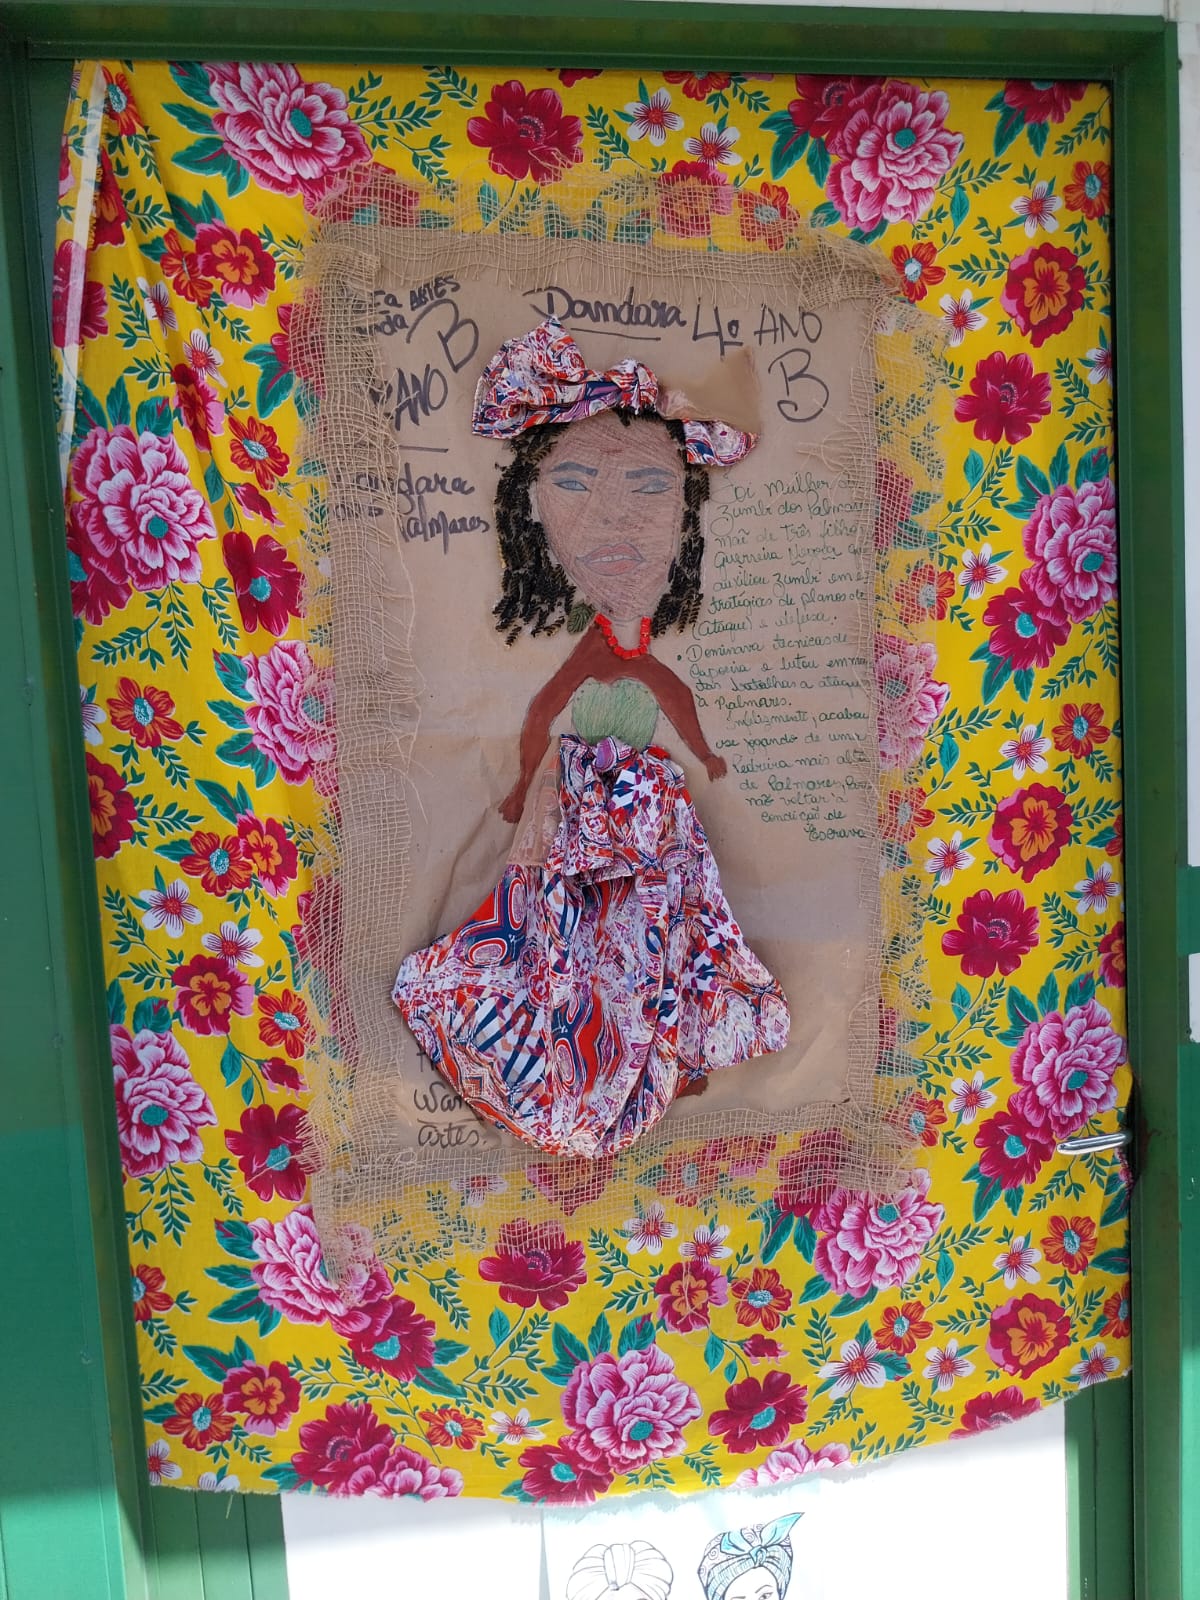 ARTES
B
ANO
Palmares
Dandara 4º ANO
B
Foi Mulher
Zumbi dos Palmar
Mãe de Três filho
Guerreira Negra qu
auxiliou Zumbi em e
tratégias de planos de
(ataque) e defesa.
• Dominava técnicas de
Capoeira e lutou em mui
tas batalhas a ataque
à Palmares.
Infelizmente, acabou
se jogando de uma
Pedreira mais alta
de Palmares, para
não voltar à
condição de
Escrava
Artes.